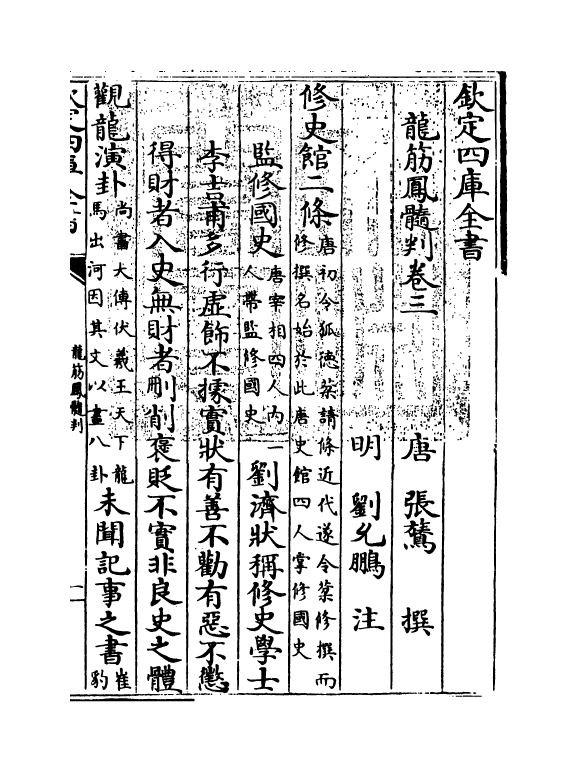 欽定四庫全書
龍筋鳳髓判卷三
唐 張鷟 撰
明 劉允鵬 注
修史館二條唐初令狐徳棻請修近代遂令棻修撰而修撰名始於此唐史館四人掌修國史
監修國史唐宰相四人内一人帶監修國史劉濟狀稱修史學士
李吉甫多行虚飾不據實狀有善不勸有惡不懲
得財者入史無財者刪削褒貶不實非良史之體
觀龍演卦尚書大傳伏羲王天下龍馬出河因其文以畫八卦未聞記事之書崔豹
欽定四庫全書
龍筋鳳髓判
一